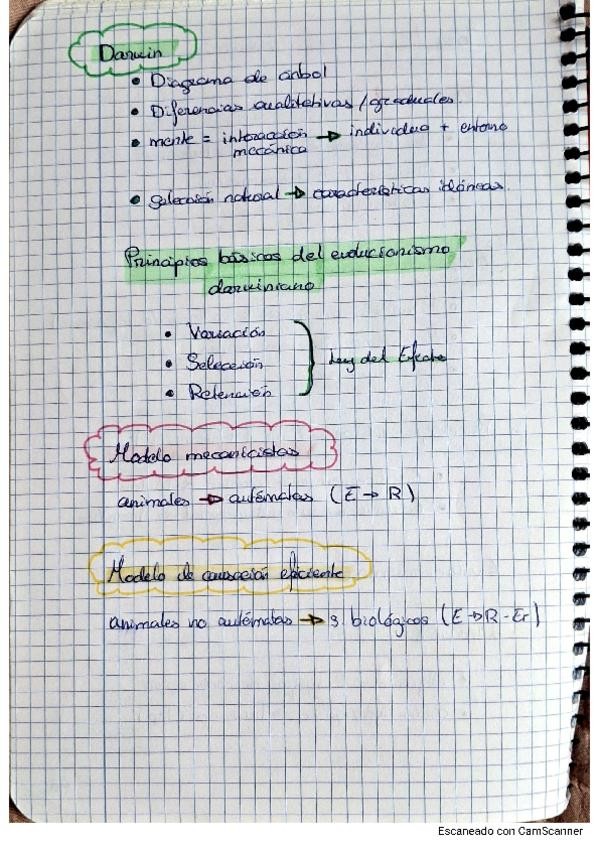 Darwin
• Diagrama de árbol
• Diferencias cualitativas / graduales
• mente = interacción → individuo + entorno
mecánica
• selección natural → características idóneas.
Principios básicos del evolucionismo
darwiniano
• Variación
• Selección
• Retención
Ley del Efecto
Modelo mecanicistas
animales → autómatas (E → R)
Modelo de causación eficiente
animales no autómatas → s. biológicos (E → R - Er)
Escaneado con CamScanner